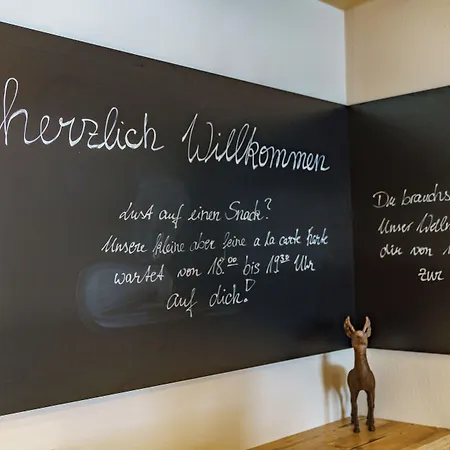 herzlich Willkommen
Lust auf einen Snack?
Unsere kleine aber feine a la carte Karte
wartet von 18.00 bis 19.30 Uhr
auf dich!
Du brauchs
Unser Welln
dir von 1
zur